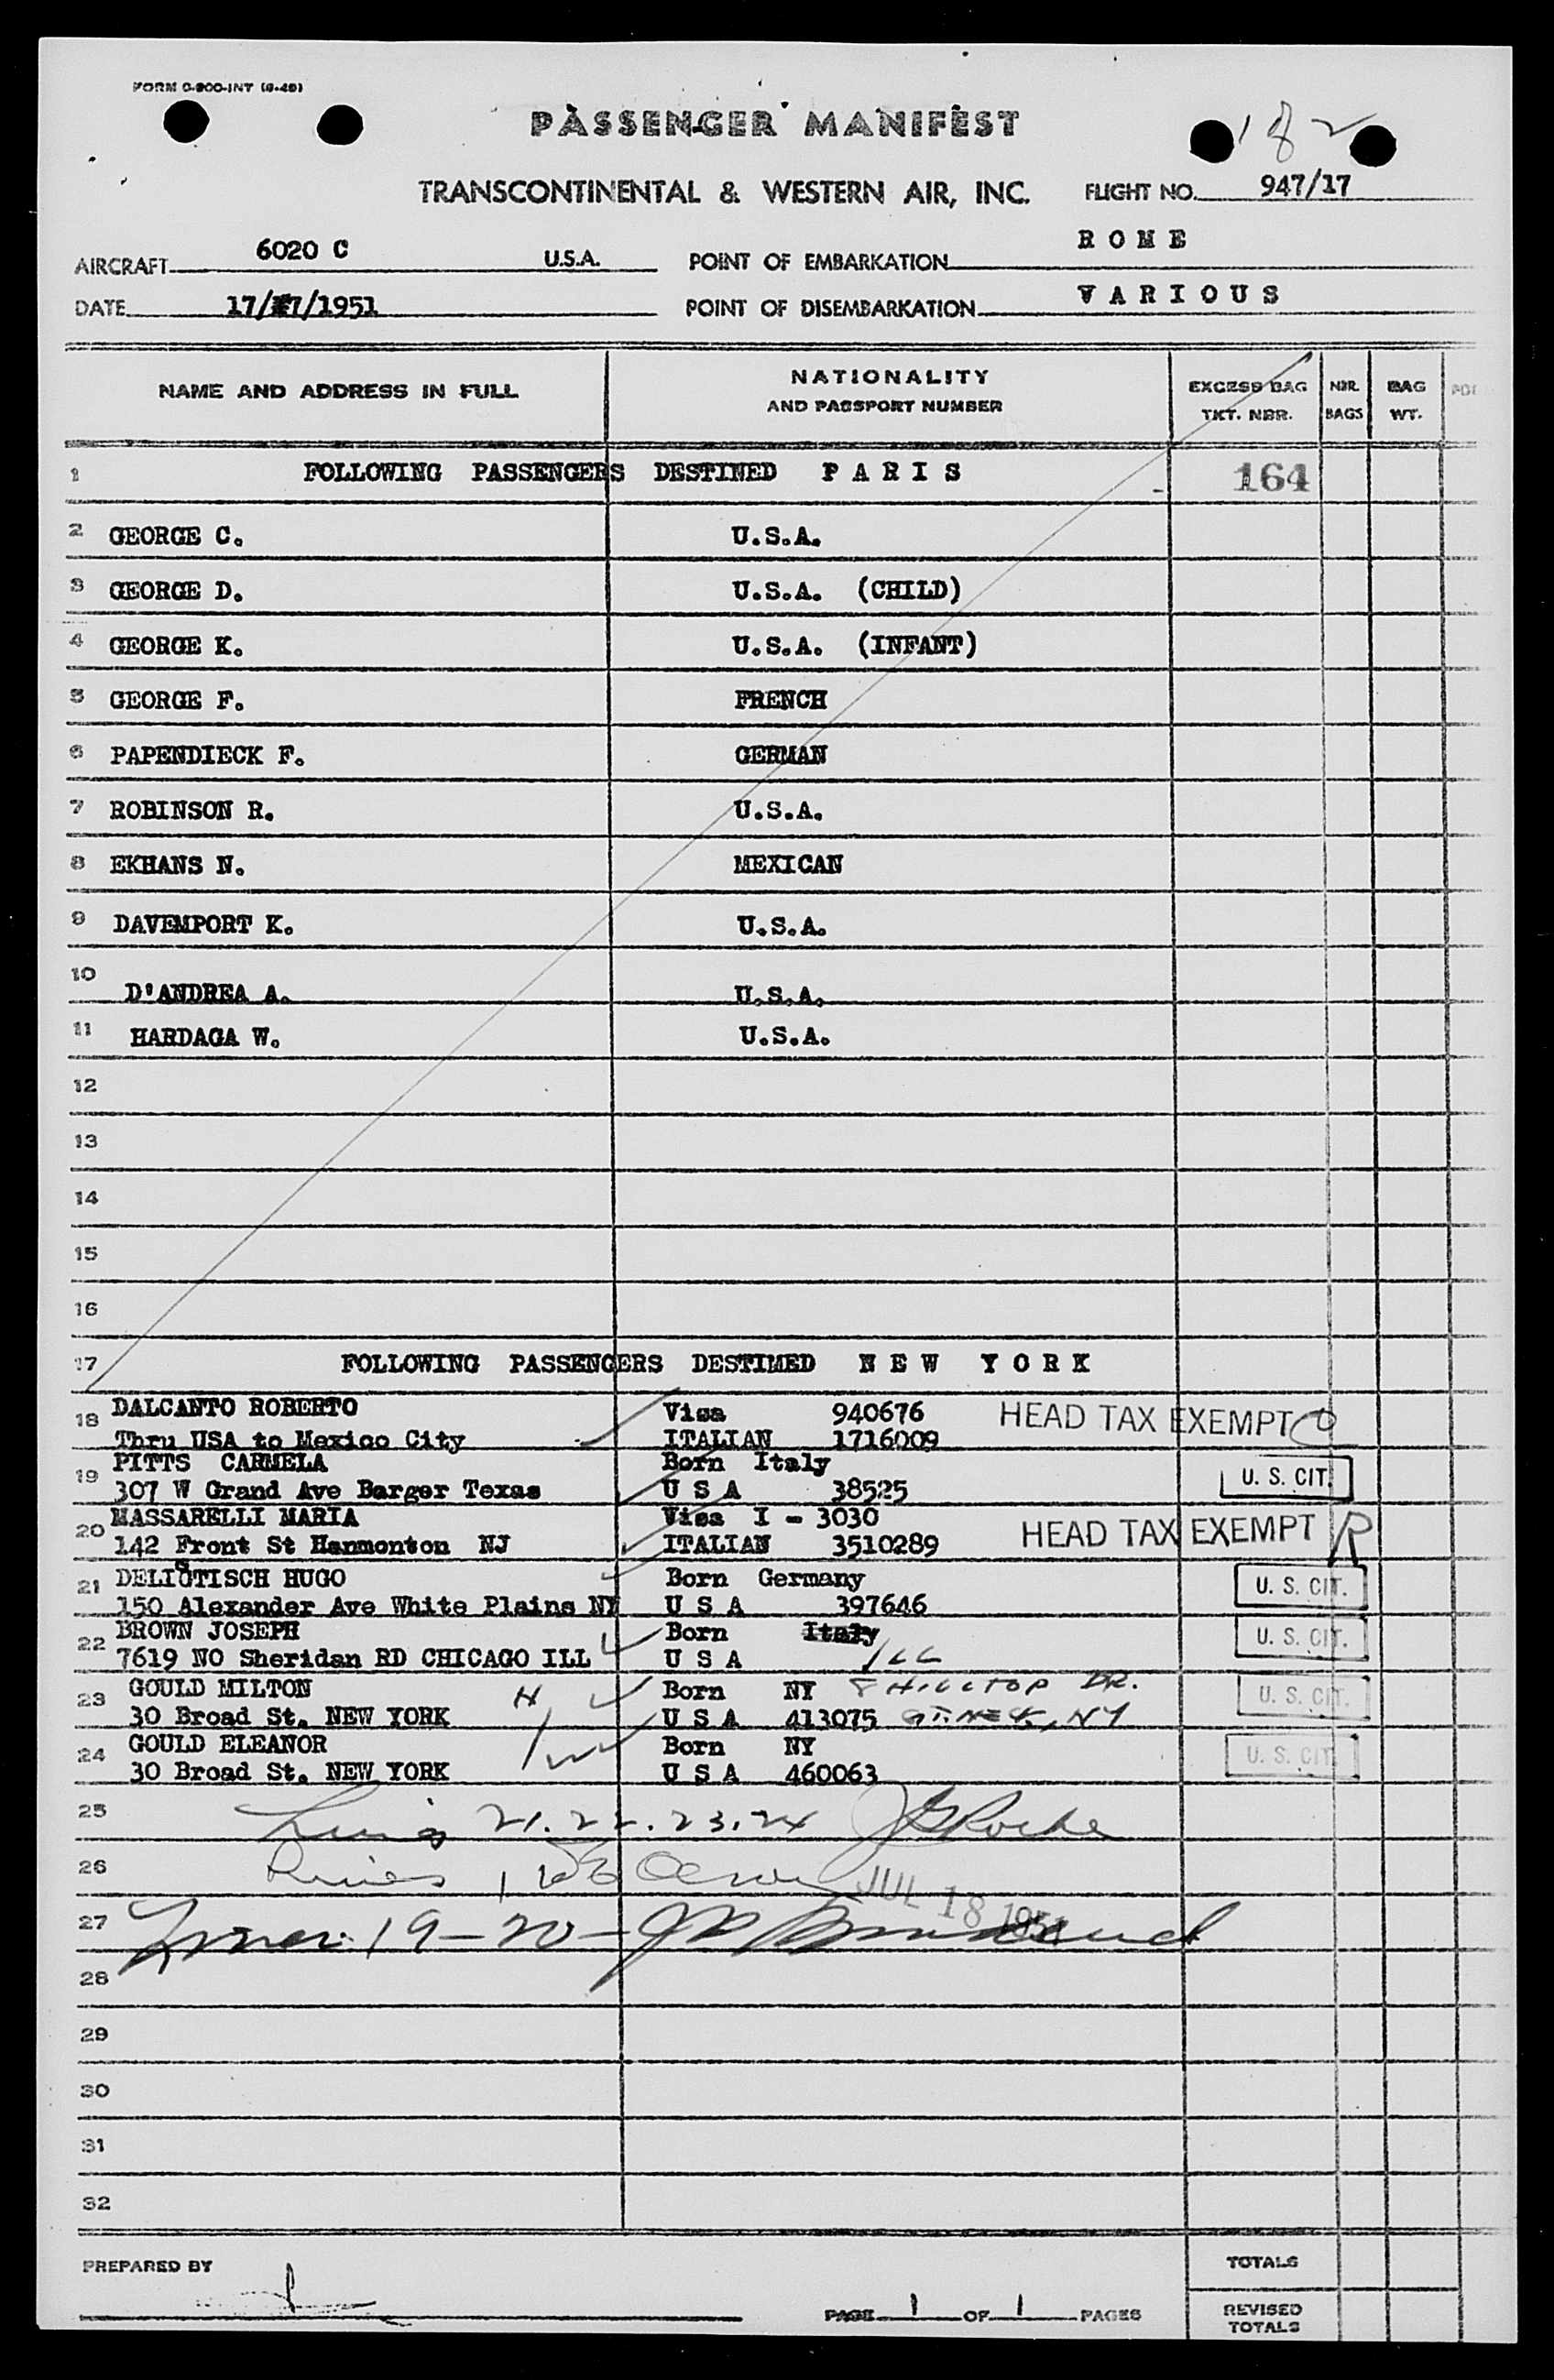 FORM O-800-INT (6-49)
PASSENGER MANIFEST
182
TRANSCONTINENTAL & WESTERN AIR, INC. FLIGHT NO. 947/17
AIRCRAFT 6020 C U.S.A. POINT OF EMBARKATION R O M E
DATE 17/7/1951 POINT OF DISEMBARKATION V A R I O U S
NAME AND ADDRESS IN FULL
NATIONALITY
AND PASSPORT NUMBER
EXCESS BAG
TKT. NBR.
NBR.
BAGS
BAG
WT.
1 FOLLOWING PASSENGERS DESTINED P A R I S 164
2 GEORGE C. U.S.A.
3 GEORGE D. U.S.A. (CHILD)
4 GEORGE K. U.S.A. (INFANT)
5 GEORGE F. FRENCH
6 PAPENDIECK F. GERMAN
7 ROBINSON R. U.S.A.
8 EKHANS N. MEXICAN
9 DAVEMPORT K. U.S.A.
10 D'ANDREA A. U.S.A.
11 HARDAGA W. U.S.A.
12
13
14
15
16
17 FOLLOWING PASSENGERS DESTINED N E W Y O R K
18 DALCANTO ROBERTO Visa 940676 HEAD TAX EXEMPT
Thru USA to Mexico City ITALIAN 1716009
19 PITTS CARMELA Born Italy
307 W Grand Ave Barger Texas U S A 38525 U. S. CIT.
20 MASSARELLI MARIA Visa I - 3030 HEAD TAX EXEMPT R
142 Front St Hanmonton NJ ITALIAN 3510289
21 DELIŚTISCH HUGO Born Germany U. S. CIT.
150 Alexander Ave White Plains NY U S A 397646
22 BROWN JOSEPH Born Italy U. S. CIT.
7619 NO Sheridan RD CHICAGO ILL U S A Ill
23 GOULD MILTON H Born NY 8 HILLTOP DR. U. S. CIT.
30 Broad St. NEW YORK U S A 413075 GT. NECK, NY
24 GOULD ELEANOR Born NY U. S. CIT.
30 Broad St. NEW YORK U S A 460063
25 Lines 21. 22. 23. 24 J Roche
26 Lines
JUL 18 1951
27 Lines 19 - 20 -
28
29
30
31
32
PREPARED BY
PAGE 1 OF 1 PAGES
TOTALS
REVISED
TOTALS